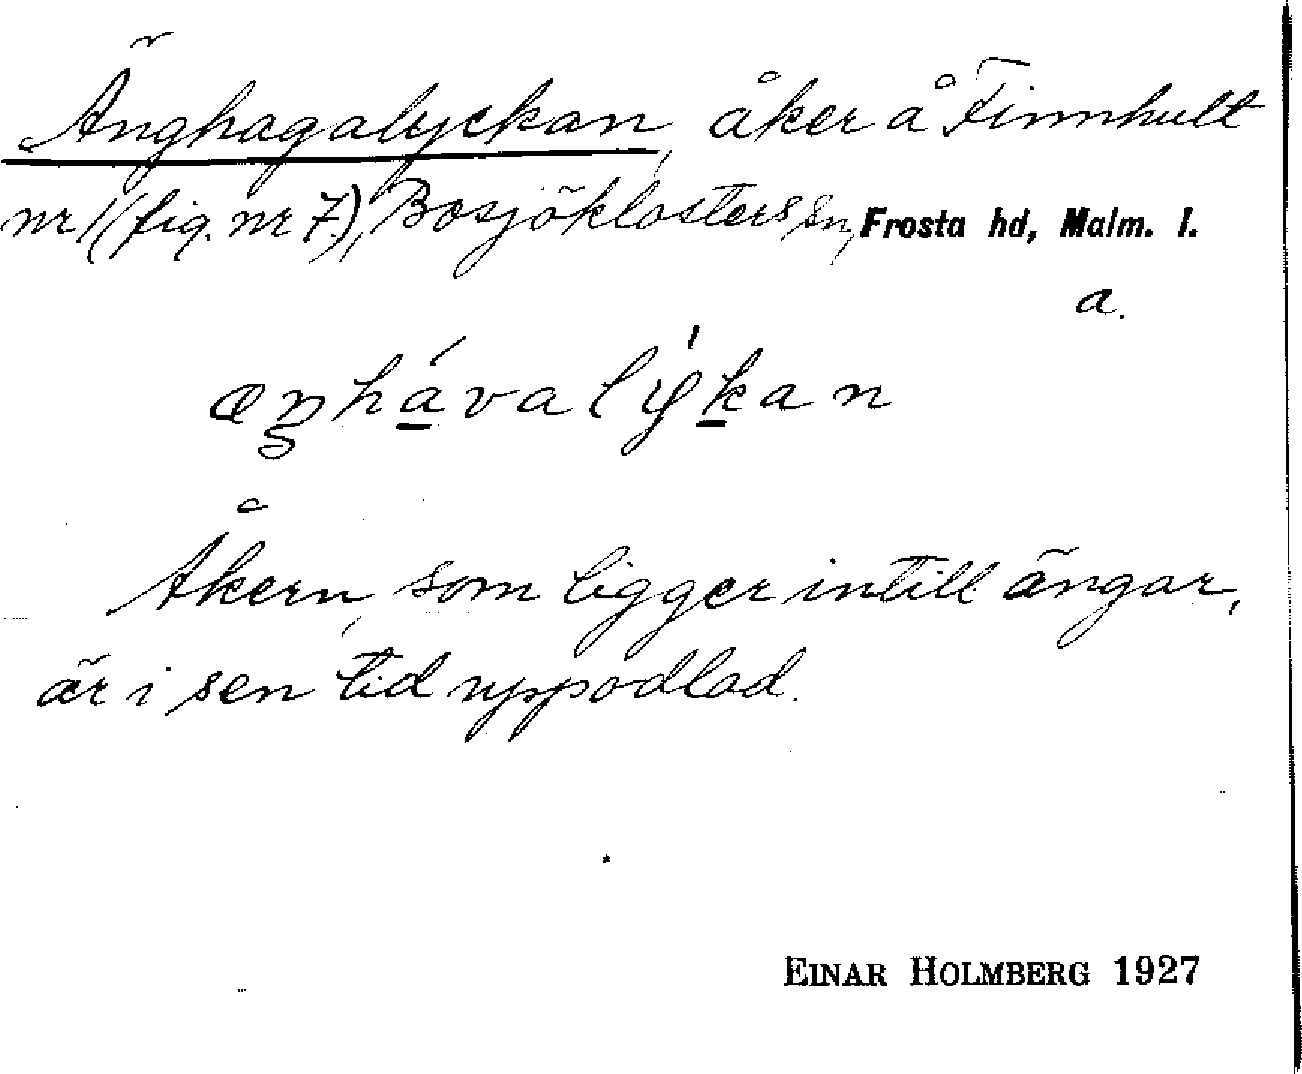 Änghagalyckan, åker å Finnhult
nr 1 (fig. nr 7.), Bosjöklosters sn, Frosta hd, Malm. l.
a.
æŋhávalýkan
Åkern, som ligger intill ängar,
är i sen tid uppodlad.
EINAR HOLMBERG 1927